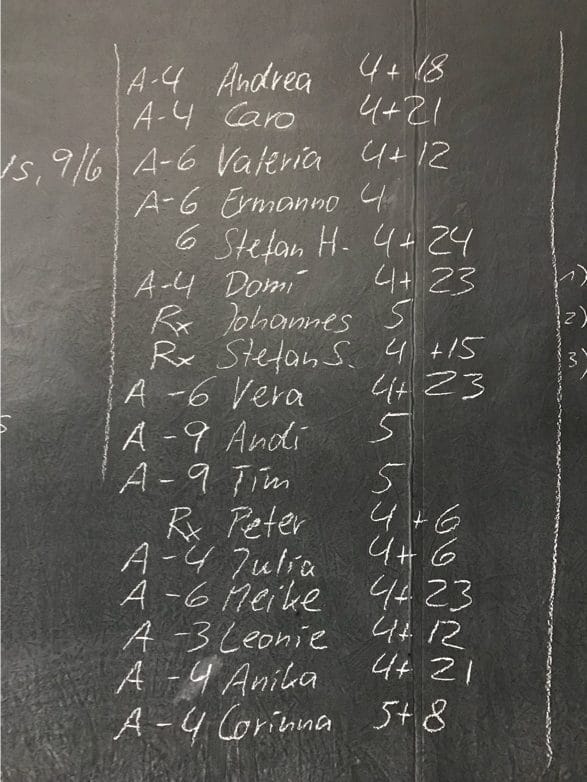 A-4 Andrea 4+18
A-4 Caro 4+21
9/6
A-6 Valeria 4+12
A-6 Ermanno 4
6 Stefan H. 4+24
A-4 Domi 4+23
1)
Rx Johannes 5
2)
Rx Stefan S. 4 +15
3)
A -6 Vera 4+23
A -9 Andi 5
A -9 Tim 5
Rx Peter 4 +6
A -4 Julia 4+6
A -6 Meike 4+23
A -3 Leonie 4+12
A -4 Anika 4+21
A -4 Corinna 5+8